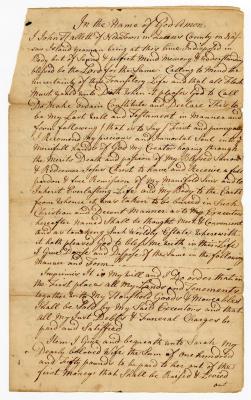 In the Name of God Amen.
I John Hall of Newtown in Queens County on Nas-
sau Island yeoman being at this time Indisposed in
Body but of Sound & perfect mind memory & understanding
blessed be the Lord for the Same. Calling to mind the
uncertainty of this Transitory Life, and that all Flesh
must yield unto Death when it pleases God to Call
Do Make ordain Constitute and Declare This to
be my Last Will and Testament in Manner and
form following that is to Say First and principally
I Recommend my Precious and Immortal Soul into the
Mercifull hands of God my Creator hoping through
the Merits Death and passion of my Blessed Saviour
& Redeemer Jesus Christ to have and Receive a full
Pardon & free Remission of my Manifold Sins and to
Inherit Everlasting Life and My Body to the Earth
from whence it was taken to be buried in Such
Christian and Decent Manner as to my Executors
hereafter Named shall be thought Meet & Convenient
and as touching Such Worldly Estate wherewith
it hath pleased God to bless me with in this Life
I Give Devise and Dispose of the Same in the following
Manner and Form.
Imprimis It is My Will and I Do order that in
the First place all My Lands and Tenements
together with My Household Goods & Moveables
Shall be Sold by my Said Executors and that
all My Just Debts & Funeral Charges be
paid and Satisfied
Item I Give and bequeath unto Sarah My
Dearly beloved wife the Sum of one hundred
and fifty pounds to be paid to her out of the
first Money that Shall be Raised & Levied
out